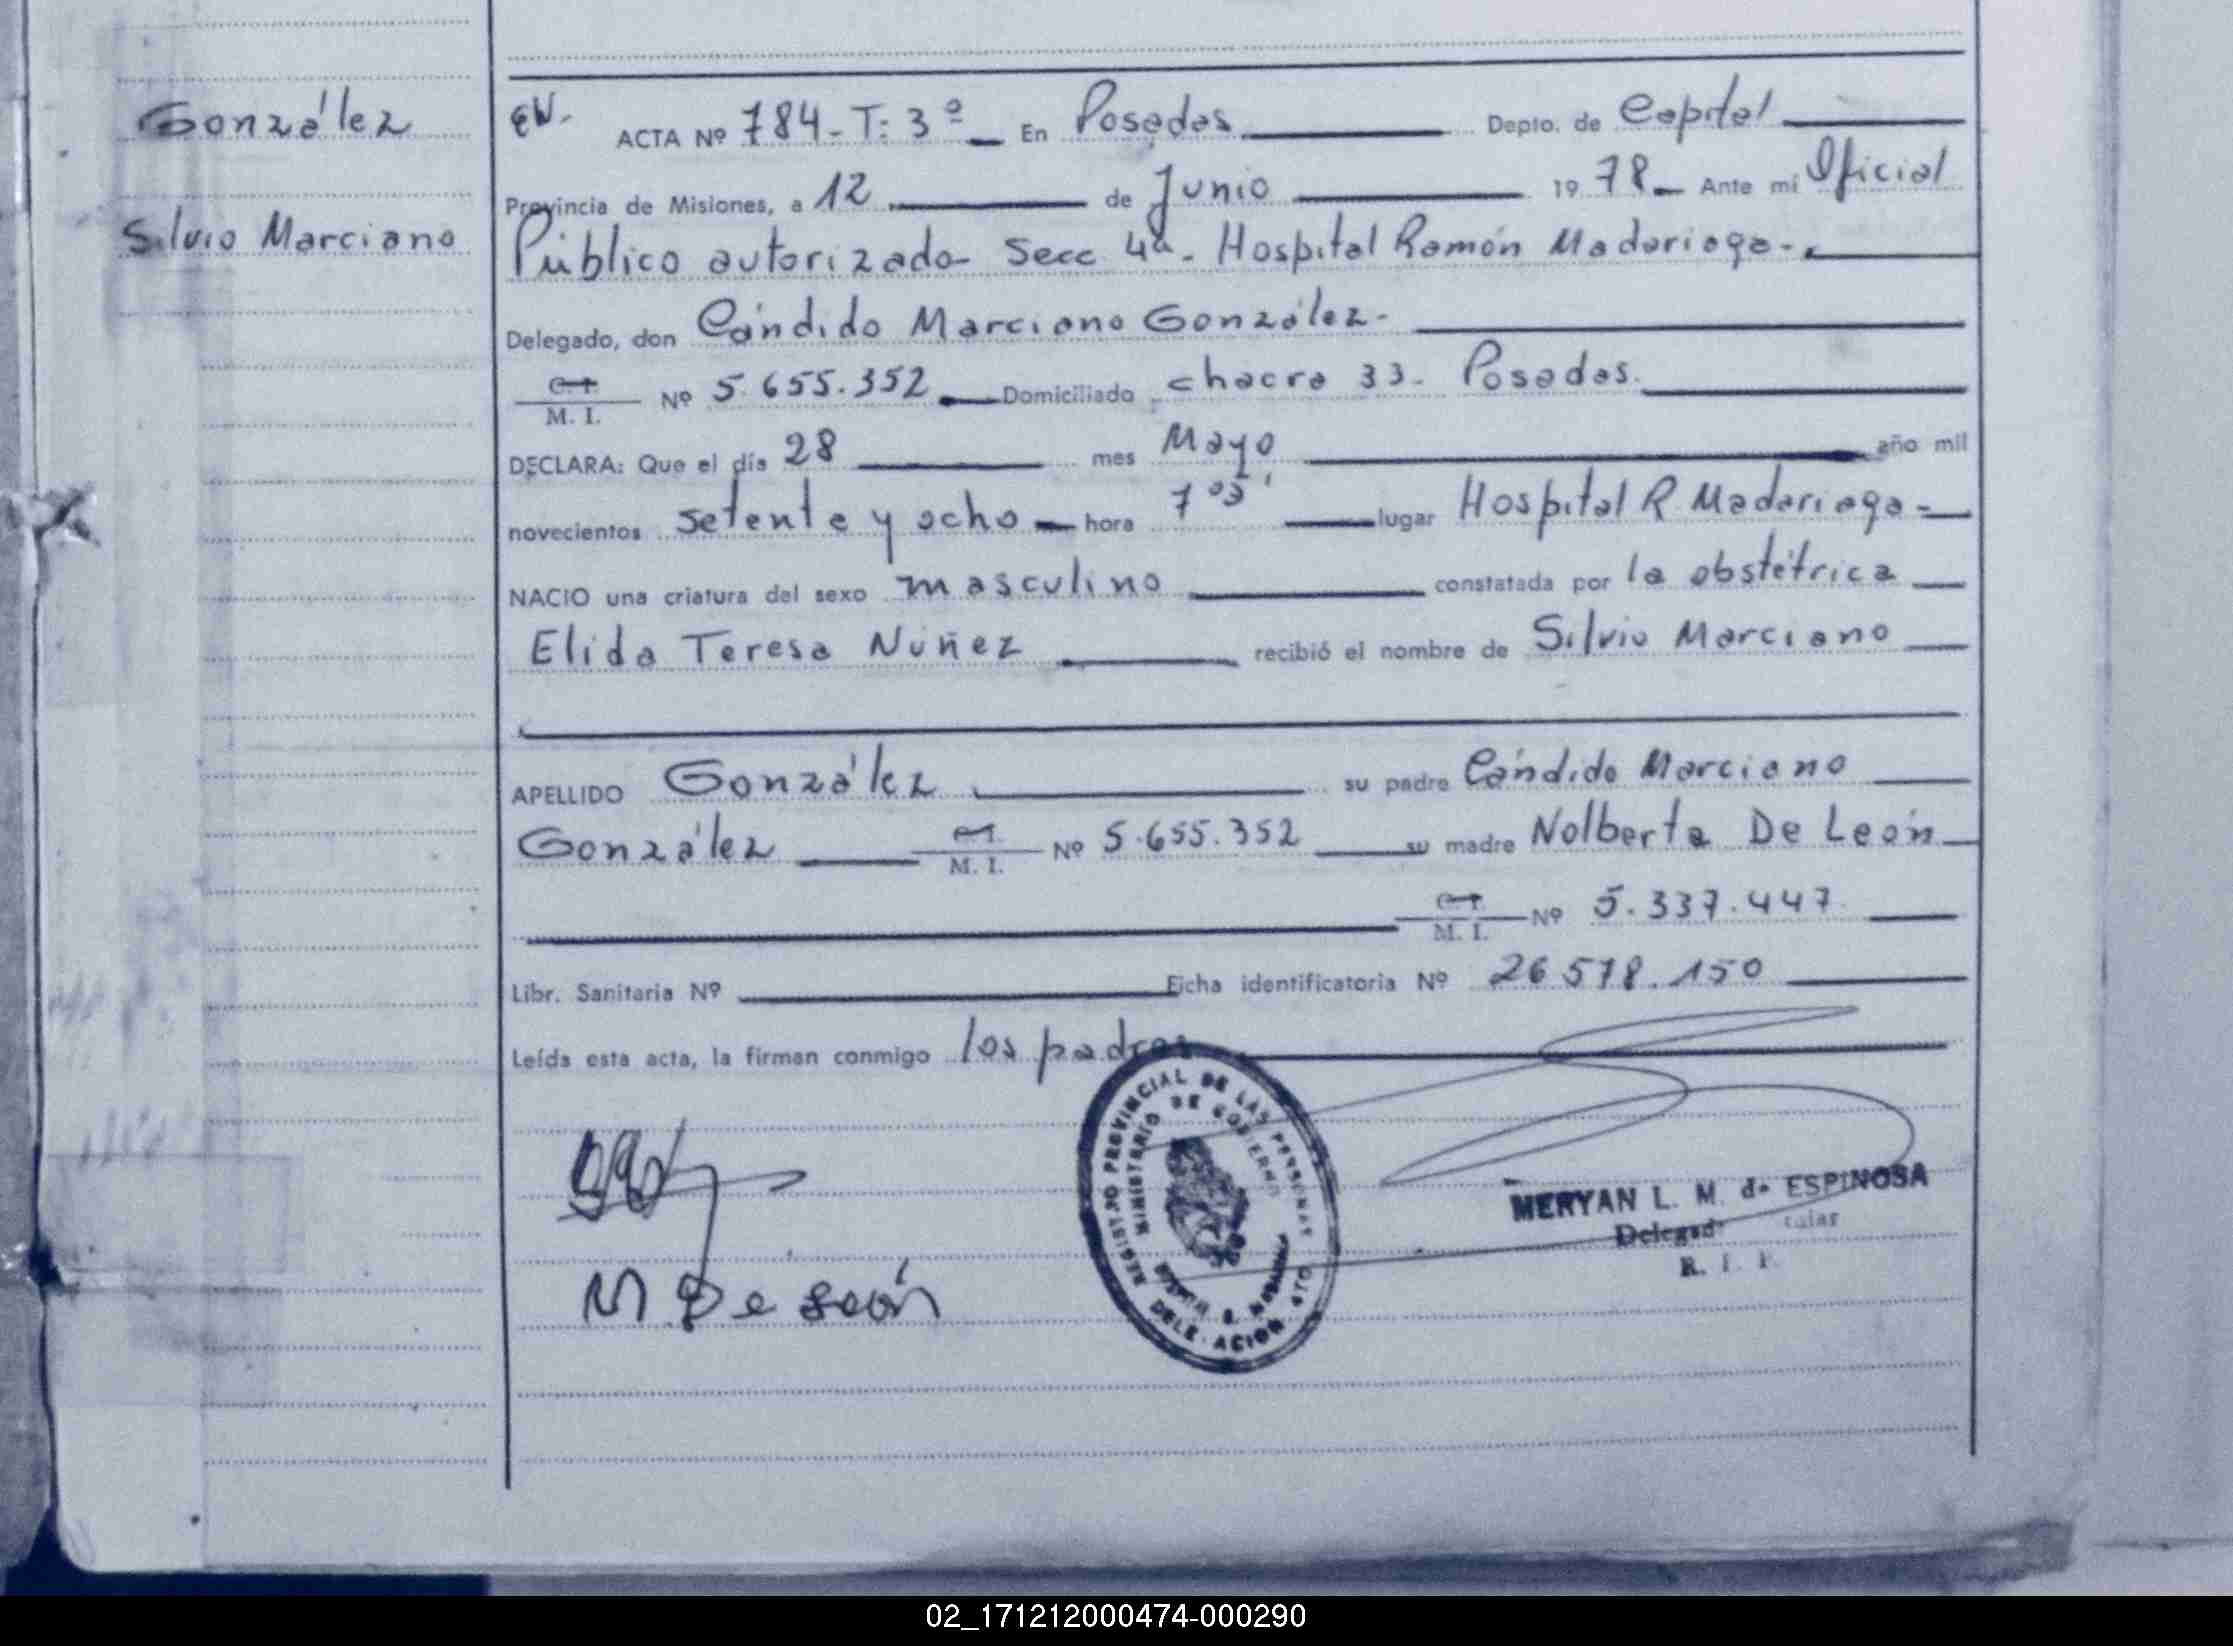 González
Silvio Marciano
EW. ACTA Nº 784 - T: 3º En Posadas Depto. de Capital
Provincia de Misiones, a 12 de Junio 1978 Ante mi Oficial
Público autorizado - Secc 4ª - Hospital Ramón Madariaga -
Delegado, don Cándido Marciano González -
C. I.
M. I. Nº 5.655.352 Domiciliado chacra 33 - Posadas.
DECLARA: Que el día 28 mes Mayo año mil
novecientos setenta y ocho hora 7 05' lugar Hospital R Madariaga -
NACIO una criatura del sexo masculino constatada por la obstétrica
Elida Teresa Núñez recibió el nombre de Silvio Marciano
APELLIDO González su padre Cándido Marciano
González C. I. M. I. Nº 5.655.352 su madre Nolberta De León
C. I. M. I. Nº 5.337.447
Libr. Sanitaria Nº Ficha identificatoria Nº 26 578.150
Leída esta acta, la firman conmigo los padres
N De León
REGISTRO PROVINCIAL DE LAS PERSONAS
MINISTERIO DE GOBIERNO
DELEGACION
MERYAN L. M. de ESPINOSA
Delegad
R.
02_171212000474-000290